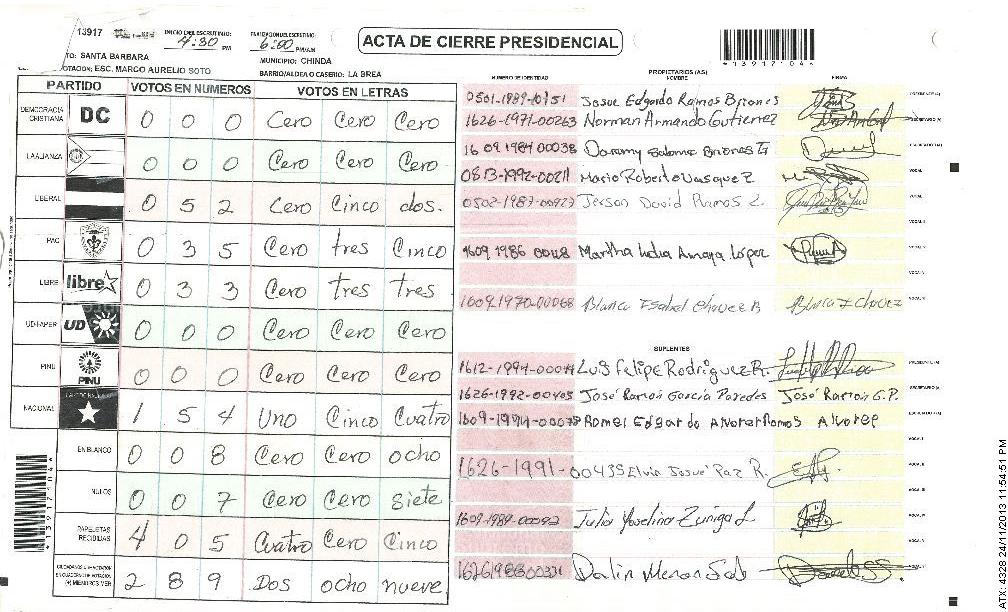 13917
INICIO DEL ESCRUTINIO: 4:30 PM
FINALIZACION DEL ESCRUTINIO: 6:00 PM/AM
ACTA DE CIERRE PRESIDENCIAL
*1391704*
TO: SANTA BARBARA
MUNICIPIO: CHINDA
OTACION: ESC. MARCO AURELIO SOTO
BARRIO/ALDEA O CASERIO: LA BREA
PARTIDO VOTOS EN NUMEROS VOTOS EN LETRAS
DEMOCRACIA CRISTIANA DC 0 0 0 Cero Cero Cero
LA ALIANZA 0 0 0 Cero Cero Cero
LIBERAL 0 5 2 Cero Cinco dos.
PAC 0 3 5 Cero tres Cinco
LIBRE libre 0 3 3 Cero tres tres
UD-FAPER UD 0 0 0 Cero Cero Cero
PINU PINU 0 0 0 Cero Cero Cero
NACIONAL 1 5 4 Uno Cinco Cuatro
EN BLANCO 0 0 8 Cero Cero ocho
NULOS 0 0 7 Cero Cero siete
PAPELETAS RECIBIDAS 4 0 5 Cuatro Cero Cinco
2 8 9 Dos ocho nueve
*1391704*
NUMERO DE IDENTIDAD PROPIETARIOS (AS) NOMBRE FIRMA
0501-1989-10151 Josue Edgardo Ramos Briones
1626-1971-00263 Norman Armando Gutierrez
16 09 1984 00038 Dorammy Salome Briones
0813-1992-00211 Mario Roberto Vasquez
0502-1987-00977 Jerson David Ramos Z.
1609 1986 00118 Martha Lidia Amaya López
1609-1970-00068 Blanca Isabel Chavez B Blanca I Chavez
SUPLENTES
1612-1994-00044 Luis Felipe Rodriguez R.
1626-1992-00405 José Ramón García Paredes José Ramón G.P.
1609-1994-00078 Romel Edgardo Alvarez Ramos Alvarez
1626-1991-00435 Elvin Josué Paz R.
1609-1989-00092 Julia Yovelina Zuniga L
1626198800331
ATX: 4328 24/11/2013 11:54:51 PM